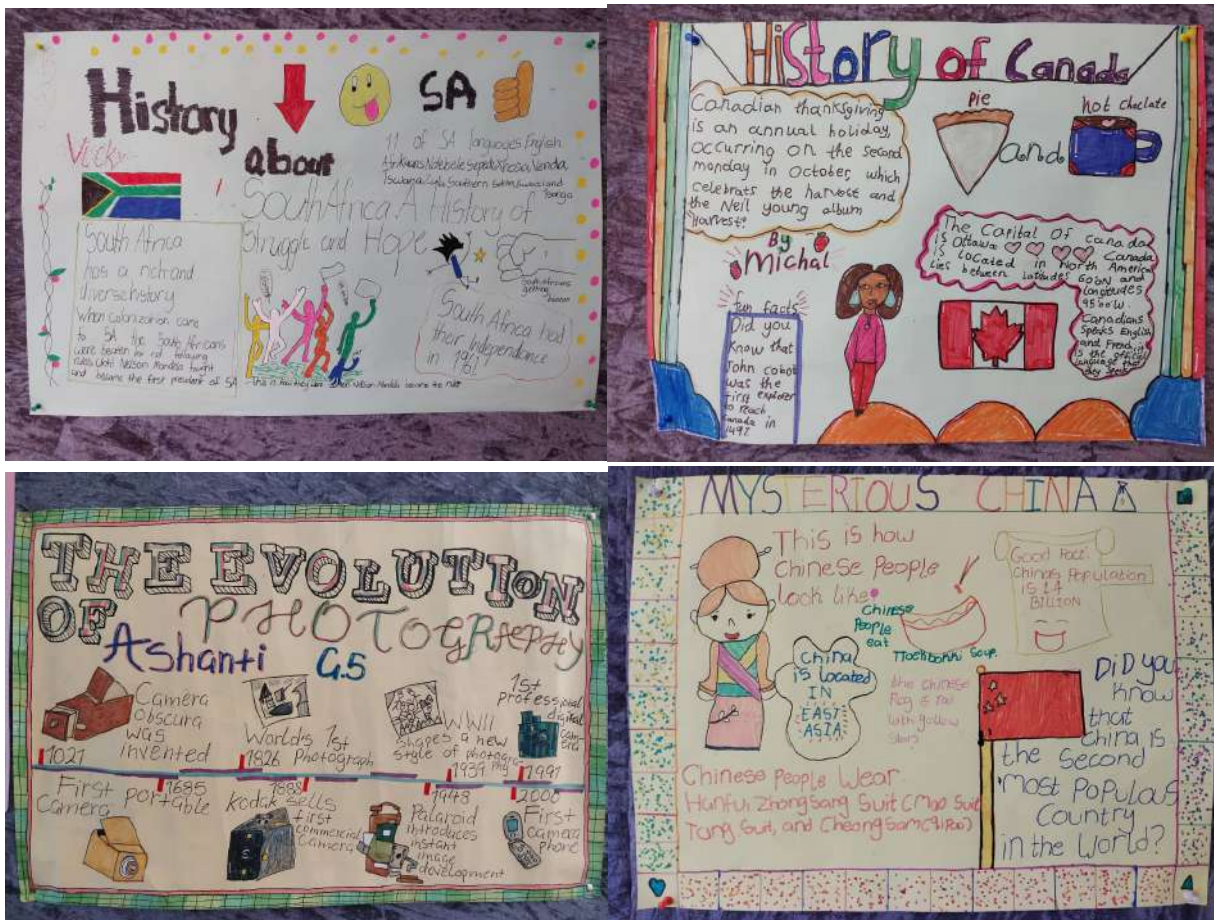 History
about
SA
Vicky
11 of SA languages English
Afrikaans Ndebele Sepedi Xhosa Venda
Tswana Zulu Southern Sotho Swazi and
Tsonga
South Africa A History of
Struggle and Hope
South Africa
has a rich and
diverse history
when colonization came
to SA the South Africans
were beaten for not following
rules until Nelson Mandela fought
and became the first president of SA
South Africans
getting
beaten
South Africa had
their Independence
in 1961
This is how they were when Nelson Mandela became the
History of Canada
Canadian thanksgiving
is an annual holiday,
occurring on the second
monday in October, which
celebrats the harvest and
the Neil young album
Harvest?
Pie
and
hot choclate
By
Michal
The Capital Of Canada
is Ottawa Canada
is Located in North America
lies between latitudes 60°N and
longitudes
95°00W.
Canadians
Speaks English
and French it
is the official
language that
they speak
fun facts
Did you
know that
John cobot
was the
first explorer
to reach
Canada in
1497
THE EVOLUTION
OF PHOTOGRAPHY
Ashanti G.5
Camera
Obscura
was
invented
1021
World's 1st
Photograph
1826
WWII
shapes a new
style of photogra
phy
1939
1st
professional
digital
cam-
era
1991
First portable
Camera
1685
Kodak sells
first
commercial
camera
1888
1948
Palaroid
introduces
instant
image
development
2000
First
Camera
phone
MYSTERIOUS CHINA
This is how
Chinese People
Look like
Chinese
People
eat
Tteokbokki Soup.
Good Fact:
China's Population
is 1.4
BILLION
China
is located
IN
EAST
ASIA
the Chinese
flag is red
with yellow
stars
DiD you
know
that
China is
the second
most Populous
Country
in the World?
Chinese People Wear
Hanfu, Zhongsang Suit (Mao Suit
Tang Suit, and Cheongsam (Qipao)